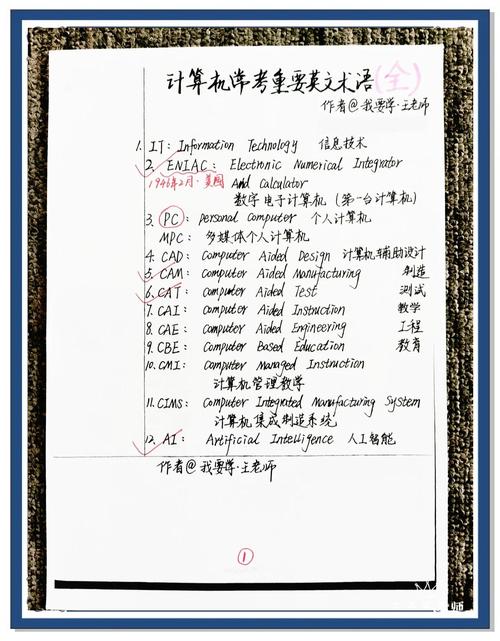 计算机常考重要英文术语(全)
作者@我要学·王老师
1. IT: Information Technology 信息技术
2. ENIAC: Electronic Numerical Integrator
1946年2月·美国 And Calculator
数字电子计算机 (第一台计算机)
3. PC: personal computer 个人计算机
MPC: 多媒体个人计算机
4. CAD: Computer Aided Design 计算机辅助设计
5. CAM: Computer Aided Manufacturing 制造
6. CAT: Computer Aided Test 测试
7. CAI: Computer Aided Instruction 教学
8. CAE: Computer Aided Engineering 工程
9. CBE: Computer Based Education 教育
10. CMI: Computer Managed Instruction
计算机管理教学
11. CIMS: Computer Integrated Manufacturing System
计算机集成制造系统
12. AI: Artificial Intelligence 人工智能
作者@我要学·王老师
1
师